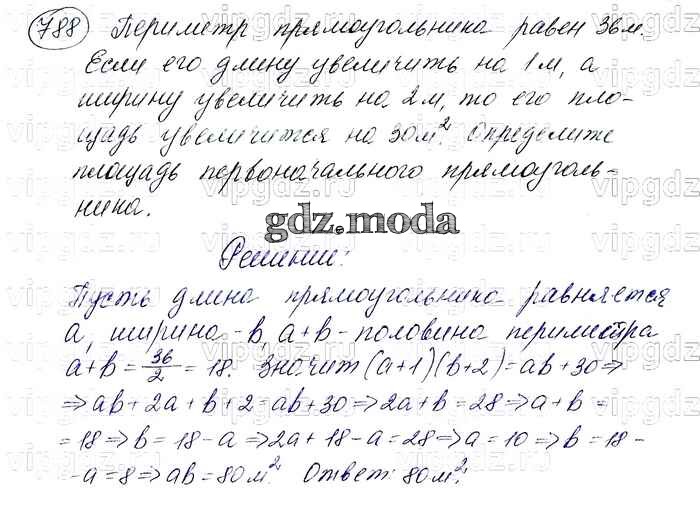 788 Периметр прямоугольника равен 36 м.
Если его длину увеличить на 1 м, а
ширину увеличить на 2 м, то его пло-
щадь увеличится на 30 м². Определите
площадь первоначального прямоуголь-
ника.
gdz.moda
Решение:
Пусть длина прямоугольника равняется
a, ширина - b, a + b - половина периметра
a + b = 36/2 = 18. Значит (a+1)(b+2) = ab + 30 ⇒
⇒ ab + 2a + b + 2 = ab + 30 ⇒ 2a + b = 28 ⇒ a + b =
= 18 ⇒ b = 18 - a ⇒ 2a + 18 - a = 28 ⇒ a = 10 ⇒ b = 18 -
- a = 8 ⇒ ab = 80 м². Ответ: 80 м².